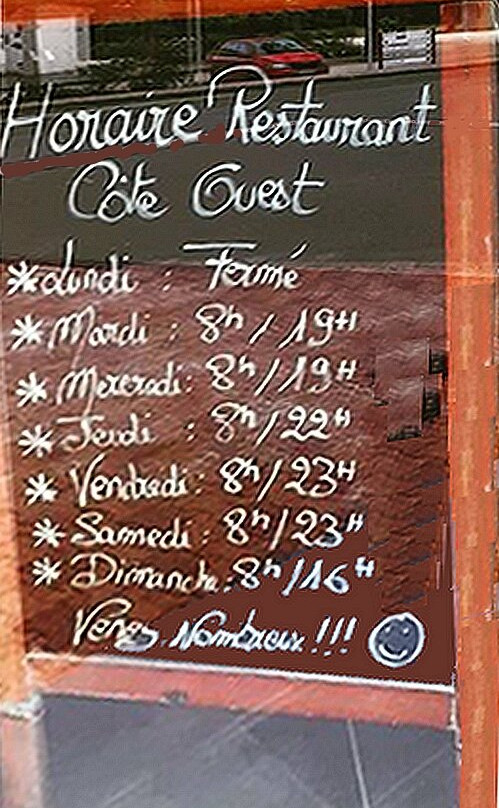 Horaire Restaurant
Côte Ouest
* Lundi : Fermé
* Mardi : 8h / 19H
* Mercredi : 8h / 19H
* Jeudi : 8h / 22H
* Vendredi : 8h / 23H
* Samedi : 8h / 23H
* Dimanche : 8h / 16H
Venez Nombreux !!!